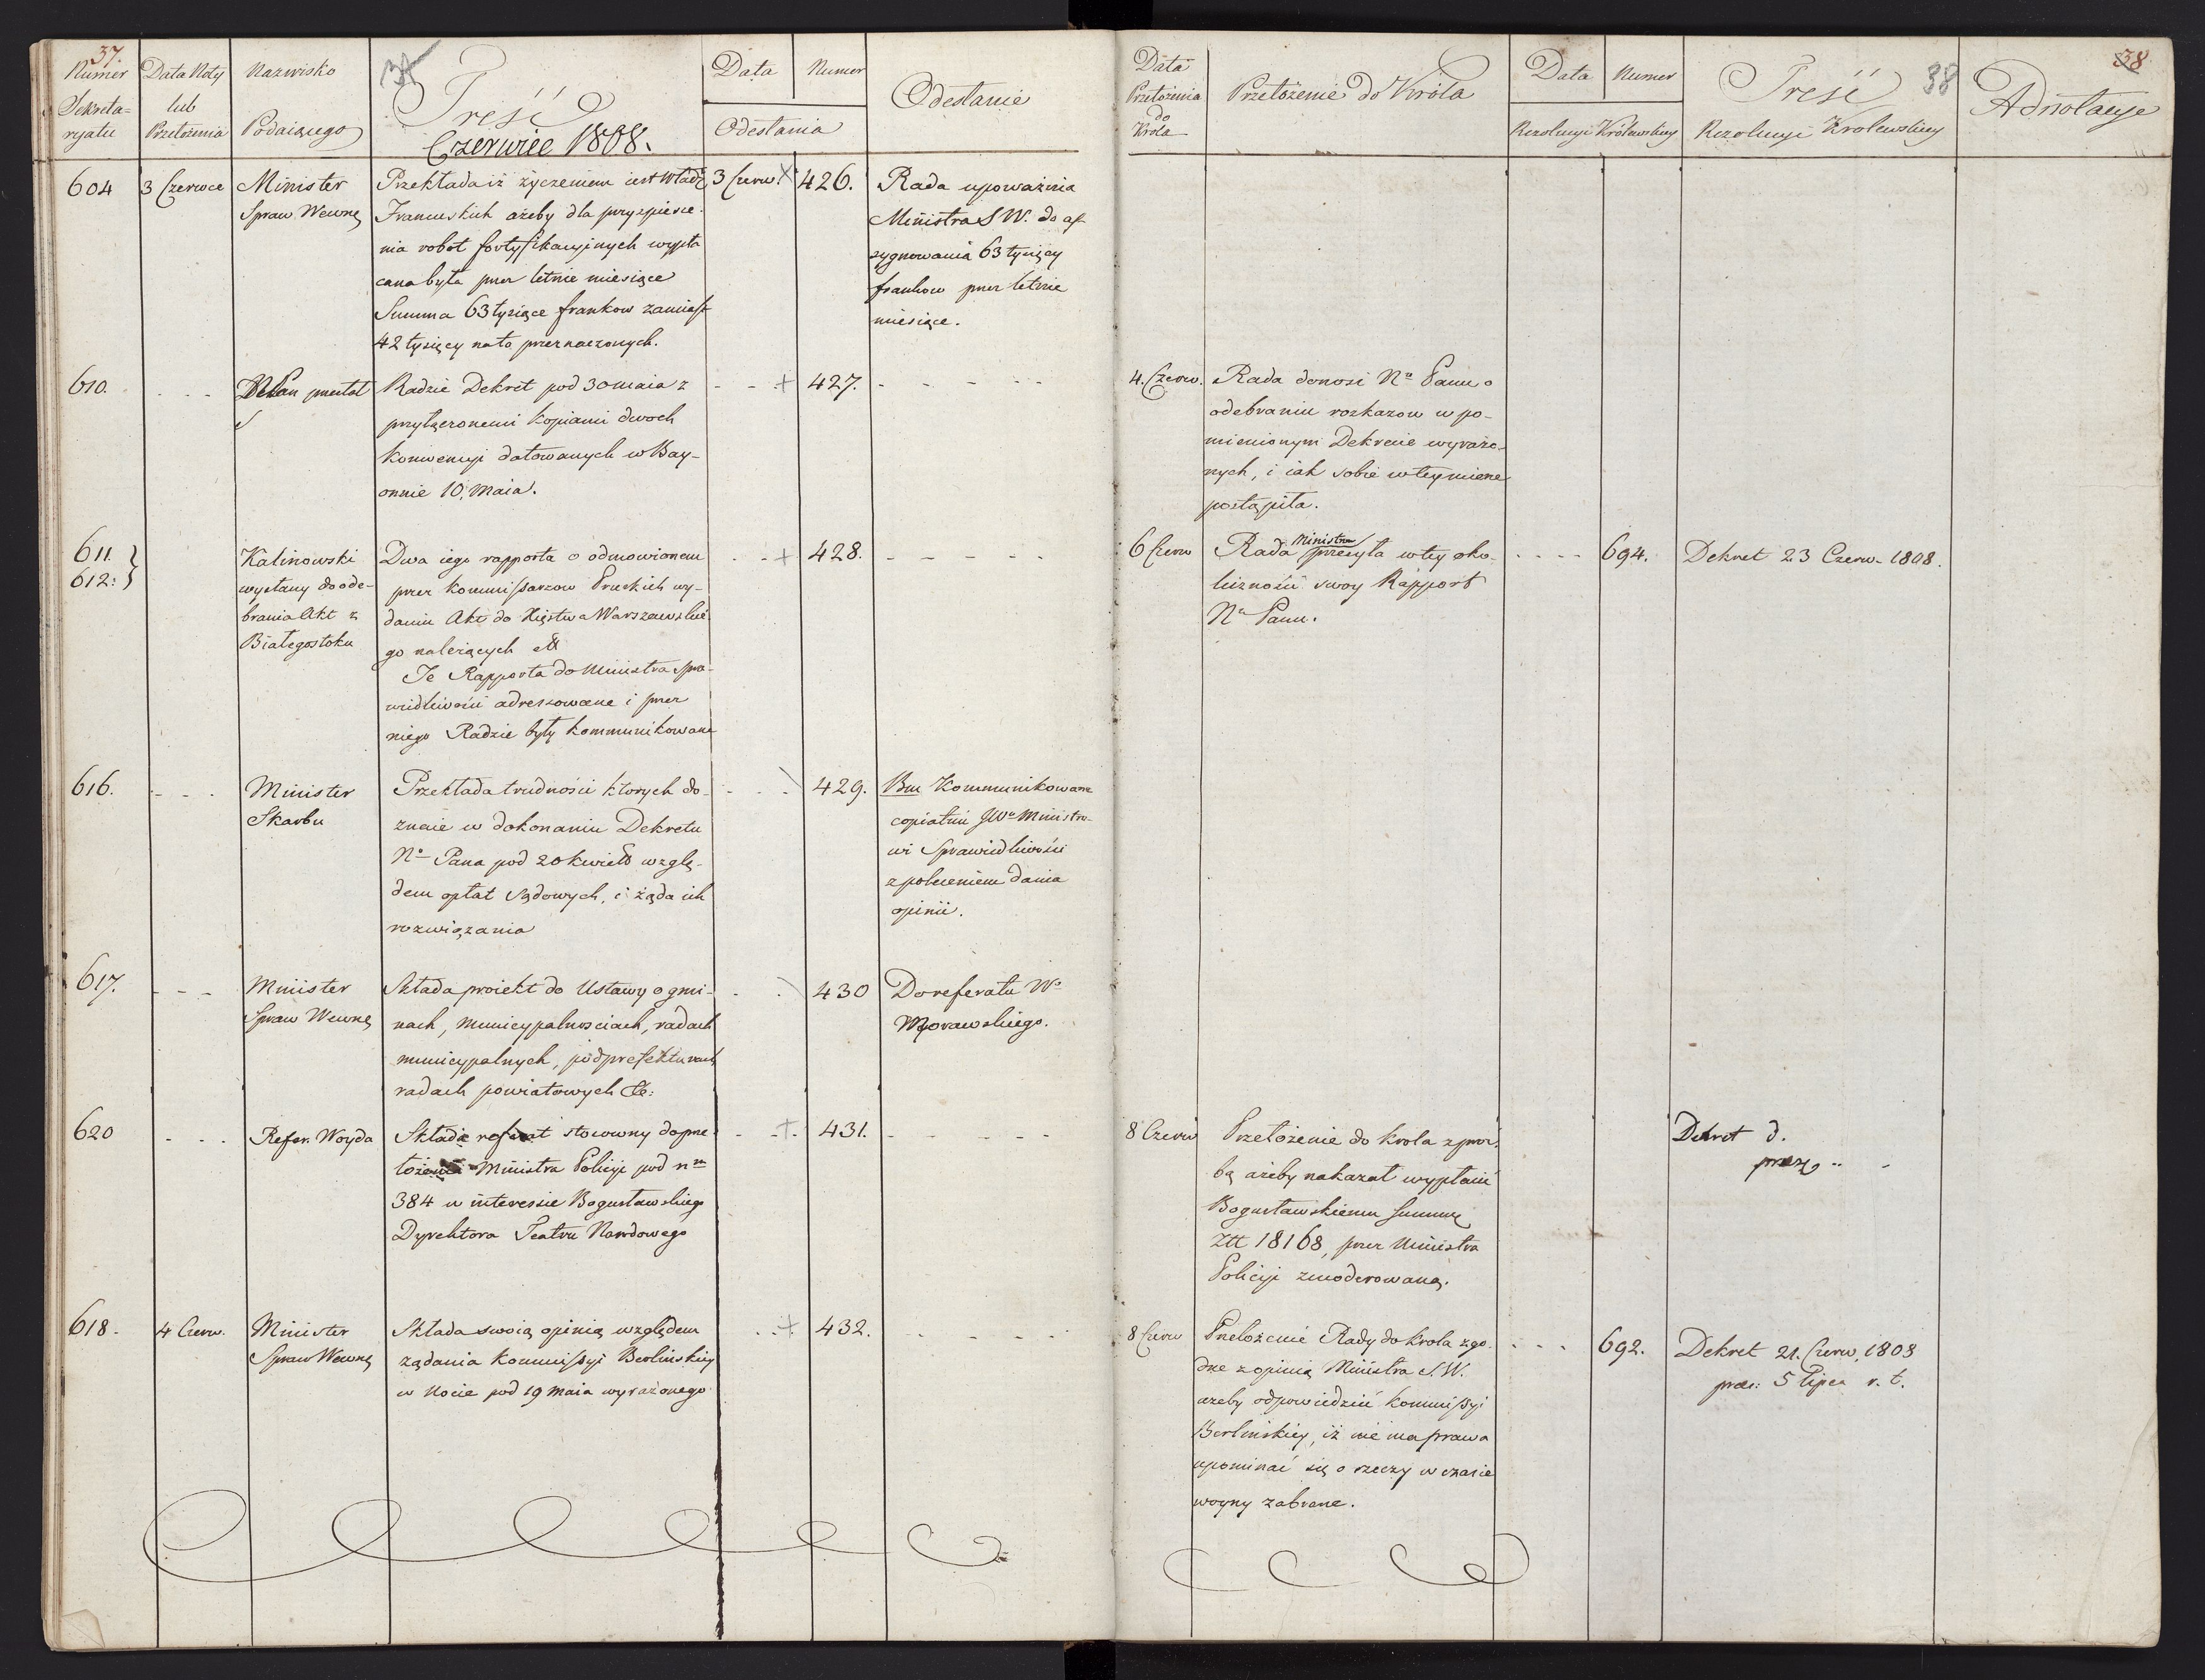 37.
Numer
Sekreta-
ryatu
Data Noty
lub
Przełożenia
Nazwisko
Podaiącego
Treść
Czerwiec 1808.
Data
Numer
Odesłania
Odesłanie
604
3 Czerwca
Minister
Spraw Wewnę
Przekłada iż życzeniem iest Władz
Francuskich ażeby dla przyspiesze-
nia robot fortyfikacyjnych wypła
cana była przez letnie miesiące
Summa 63 tysiące frankow zamiast
42 tysięcy na to przeznaczonych.
3 Czerw. X
426.
Rada upoważnia
Ministra S W. do as
sygnowania 63 tysięcy
frankow przez letnie
miesiące.
610.
- - -
Radzie Dekret pod 30 maia z
przyłączonemi kopiami dwoch
Konwencyi datowanych w Bay-
onnie 10. Maia.
- - +
427.
- - - - -
611.
612. }
Kalinowski
wysłany do ode-
brania Akt z
Białegostoku
Dwa iego rapporta o odmowionem
przez Kommissarzow Pruskich wy-
daniu Akt do Xięstwa Warszawskie
go należących
Te Rapporta do Ministra Spra-
wiedliwości adressowane i przez
niego Radzie były kommunikowane
- - +
428.
- - - - -
616.
- - -
Minister
Skarbu
Przekłada trudności ktorych do-
znaie w dokonaniu Dekretu
No Pana pod 20 Kwiet wzglę-
dem opłat Sądowych, i żąda ich
rozwiązania
- - - \
429.
Bm Kommunikowane
copiatim JWo Ministro-
wi Sprawiedliwości
z poleceniem dania
opinii.
617.
- - -
Minister
Spraw Wewnę
Składa proiekt do Ustawy o gmi-
nach, Municypalnosciach, radach
municypalnych, podprefekturach
radach powiatowych &c:
- - \
430
Do referatu Wo
Morawskiego.
620
- - -
Refer. Woyda
Składa referat stosowny do prze-
łożenia Ministra Policyi pod nm
384 w interessie Bogusławskiego
Dyrektora Teatru Narodowego
- - +
431.
- - - - -
618.
4 Czerw.
Minister
Spraw Wewnę
Składa swoią opinią względem
żądania Kommissyi Berlińskiey
w Nocie pod 19 Maia wyrażonego
- - +
432.
- - - - -
38
38
Data
Przełożenia
do
Króla
Przełożenie do Króla
Data
Numer
Rezolucyi Królewskiey
Treść
Rezolucyi Krolewskiey
Adnotacye
4. Czerw.
Rada donosi No Panu o
odebraniu rozkazow w po-
mienionym Dekrecie wyrażo-
nych, i iak sobie w tey mierze
postąpiła.
6 Czerw
Rada Ministrow przesyła w tey oko-
liczności swoy Rapport
No Panu.
- - - -
694.
Dekret 23 Czerw. 1808.
8 Czerw
Przełożenie do Krola z proś-
bą ażeby nakazał wypłacić
Bogusławskiemu Summę
Złł 18168, przez Ministra
Policyi zmoderowaną.
Dekret d.
praes ..
8 Czerw
Przełożenie Rady do Krola zgo-
dne z opinią Ministra S. W.
ażeby odpowiedzieć Kommissyi
Berlińskiey, iż nie ma prawa
upominać się o rzeczy w czasie
woyny zabrane.
- - - -
692.
Dekret 21. Czerw. 1808
praes: 5 Lipca r. t.